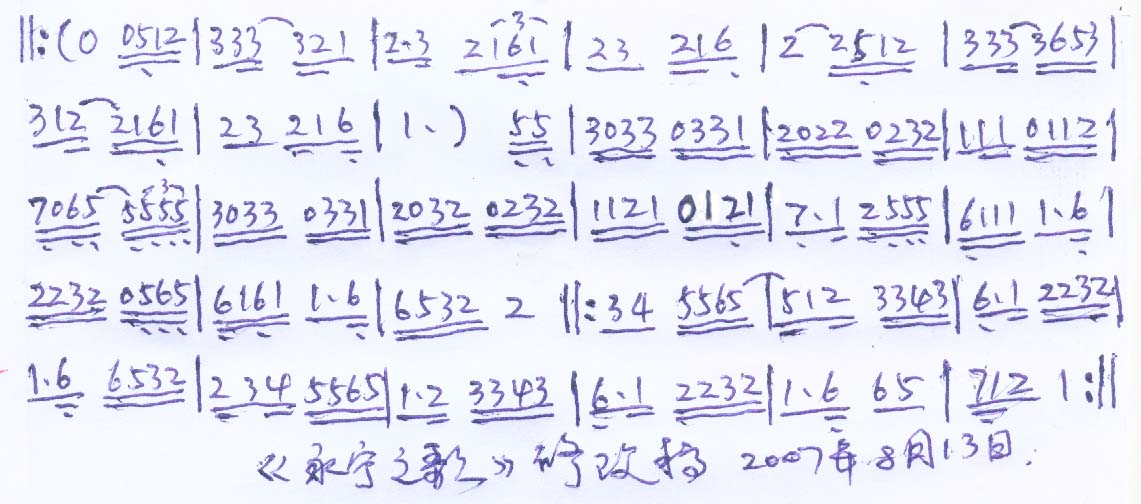 ||:(0 0512|333 321|2·3 2161|23 216|2 2512|333 3653|
312 2161|23 216|1·) 55|3033 0331|2022 0232|111 0112|
7065 5555|3033 0331|2032 0232|1121 0121|7·1 2555|6111 1·6|
2232 0565|6161 1·6|6532 2||:34 5565|512 3343|6·1 2232|
1·6 6532|234 5565|1·2 3343|6·1 2232|1·6 65|712 1:||
《永宁之歌》修改稿 2007年8月13日.